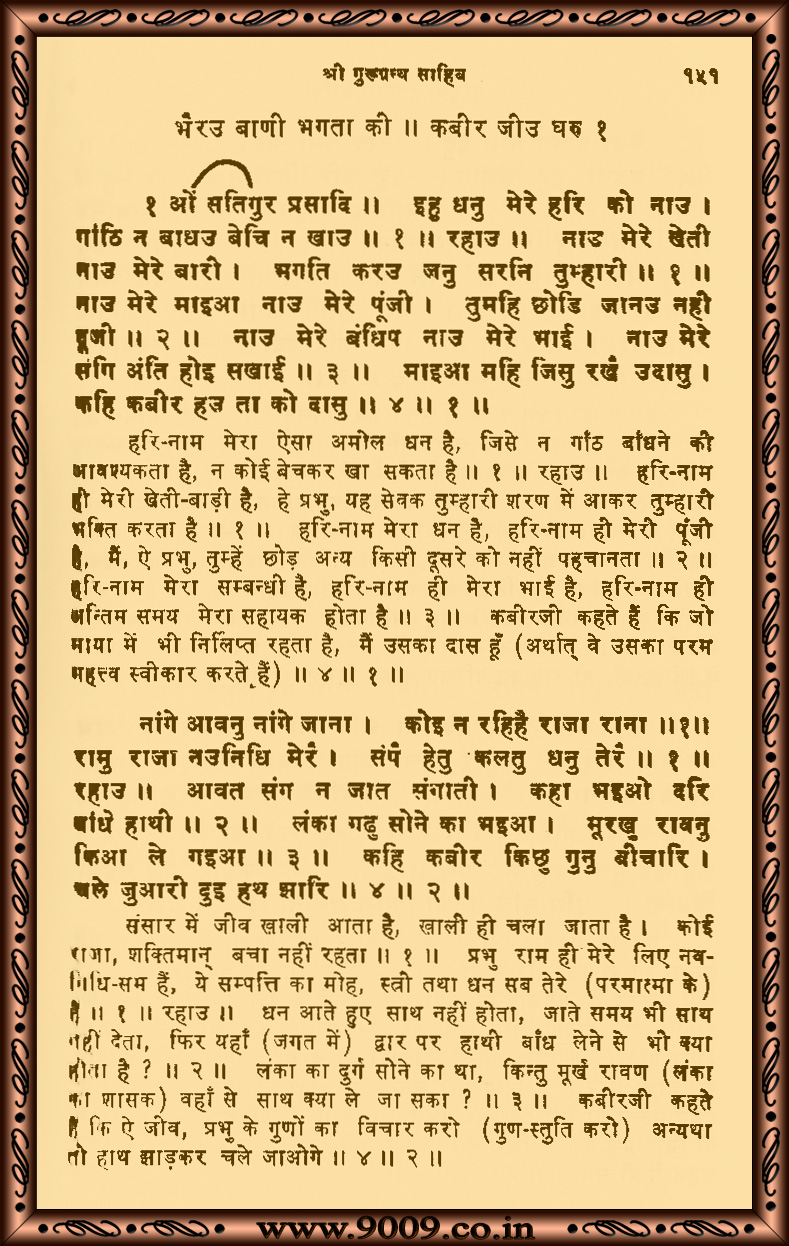 श्री गुरुग्रन्थ साहिब १५१
भैरउ बाणी भगता की ॥ कबीर जीउ घरु १
१ ओं सतिगुर प्रसादि ॥ इहु धनु मेरे हरि को नाउ ।
गांठि न बाधउ बेचि न खाउ ॥ १ ॥ रहाउ ॥ नाउ मेरे खेती
नाउ मेरे बारी । भगति करउ जनु सरनि तुम्हारी ॥ १ ॥
नाउ मेरे माइआ नाउ मेरे पूंजी । तुमहि छोडि जानउ नही
दूजी ॥ २ ॥ नाउ मेरे बंधिप नाउ मेरे भाई । नाउ मेरे
संगि अंति होइ सखाई ॥ ३ ॥ माइआ महि जिसु रखै उदासु ।
कहि कबीर हउ ता को दासु ॥ ४ ॥ १ ॥
हरि-नाम मेरा ऐसा अमोल धन है, जिसे न गाँठ बाँधने की
आवश्यकता है, न कोई बेचकर खा सकता है ॥ १ ॥ रहाउ ॥ हरि-नाम
ही मेरी खेती-बाड़ी है, हे प्रभु, यह सेवक तुम्हारी शरण में आकर तुम्हारी
भक्ति करता है ॥ १ ॥ हरि-नाम मेरा धन है, हरि-नाम ही मेरी पूंजी
है, मैं, ऐ प्रभु, तुम्हें छोड़ अन्य किसी दूसरे को नहीं पहचानता ॥ २ ॥
हरि-नाम मेरा सम्बन्धी है, हरि-नाम ही मेरा भाई है, हरि-नाम ही
अन्तिम समय मेरा सहायक होता है ॥ ३ ॥ कबीरजी कहते हैं कि जो
माया में भी निर्लिप्त रहता है, मैं उसका दास हूँ (अर्थात् वे उसका परम
महत्त्व स्वीकार करते हैं) ॥ ४ ॥ १ ॥
नांगे आवनु नांगे जाना । कोइ न रहिहै राजा राना ॥१॥
रामु राजा नउनिधि मेरै । संपै हेतु कलतु धनु तेरै ॥ १ ॥
रहाउ ॥ आवत संग न जात संगाती । कहा भइओ दरि
बांधे हाथी ॥ २ ॥ लंका गढु सोने का भइआ । मूरखु रावनु
किआ ले गइआ ॥ ३ ॥ कहि कबीर किछु गुनु बीचारि ।
चले जुआरी दुइ हथ झारि ॥ ४ ॥ २ ॥
संसार में जीव ख़ाली आता है, ख़ाली ही चला जाता है । कोई
राजा, शक्तिमान् बचा नहीं रहता ॥ १ ॥ प्रभु राम ही मेरे लिए नव-
निधि-सम हैं, ये सम्पत्ति का मोह, स्त्री तथा धन सब तेरे (परमात्मा के)
हैं ॥ १ ॥ रहाउ ॥ धन आते हुए साथ नहीं होता, जाते समय भी साथ
नहीं देता, फिर यहाँ (जगत में) द्वार पर हाथी बाँध लेने से भी क्या
होता है ? ॥ २ ॥ लंका का दुर्ग सोने का था, किन्तु मूर्ख रावण (लंका
का शासक) वहाँ से साथ क्या ले जा सका ? ॥ ३ ॥ कबीरजी कहते
हैं कि ऐ जीव, प्रभु के गुणों का विचार करो (गुण-स्तुति करो) अन्यथा
तो हाथ झाड़कर चले जाओगे ॥ ४ ॥ २ ॥
www.9009.co.in